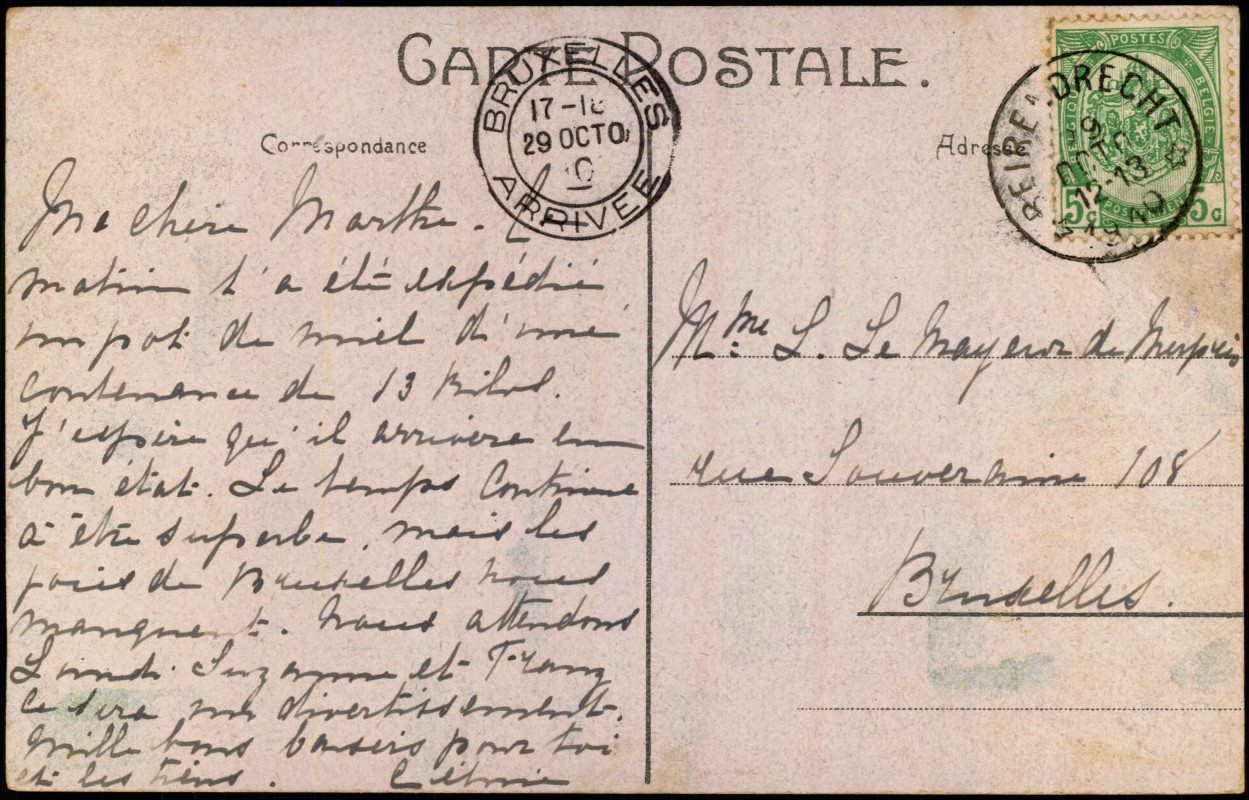 CARTE POSTALE.
Correspondance
Adresse
BRUXELLES
17-18
29 OCTO
ARRIVEE
POSTES
BELGIE
5c 5c
OCT
12-13
Ma chère Marthe. C
matin t'a été expédié
un pot de miel d'une
contenance de 13 kilos.
J'espère qu'il arrivera en
bon état. Le temps continue
à être superbe, mais les
de Bruxelles nous
manquent. Nous attendons
Lundi Suzanne et Franz
ce sera un divertissement.
Mille bons baisers pour toi
et les tiens.
Mme L. Le Mayeur de Merprès
rue Souveraine 108
Bruxelles.